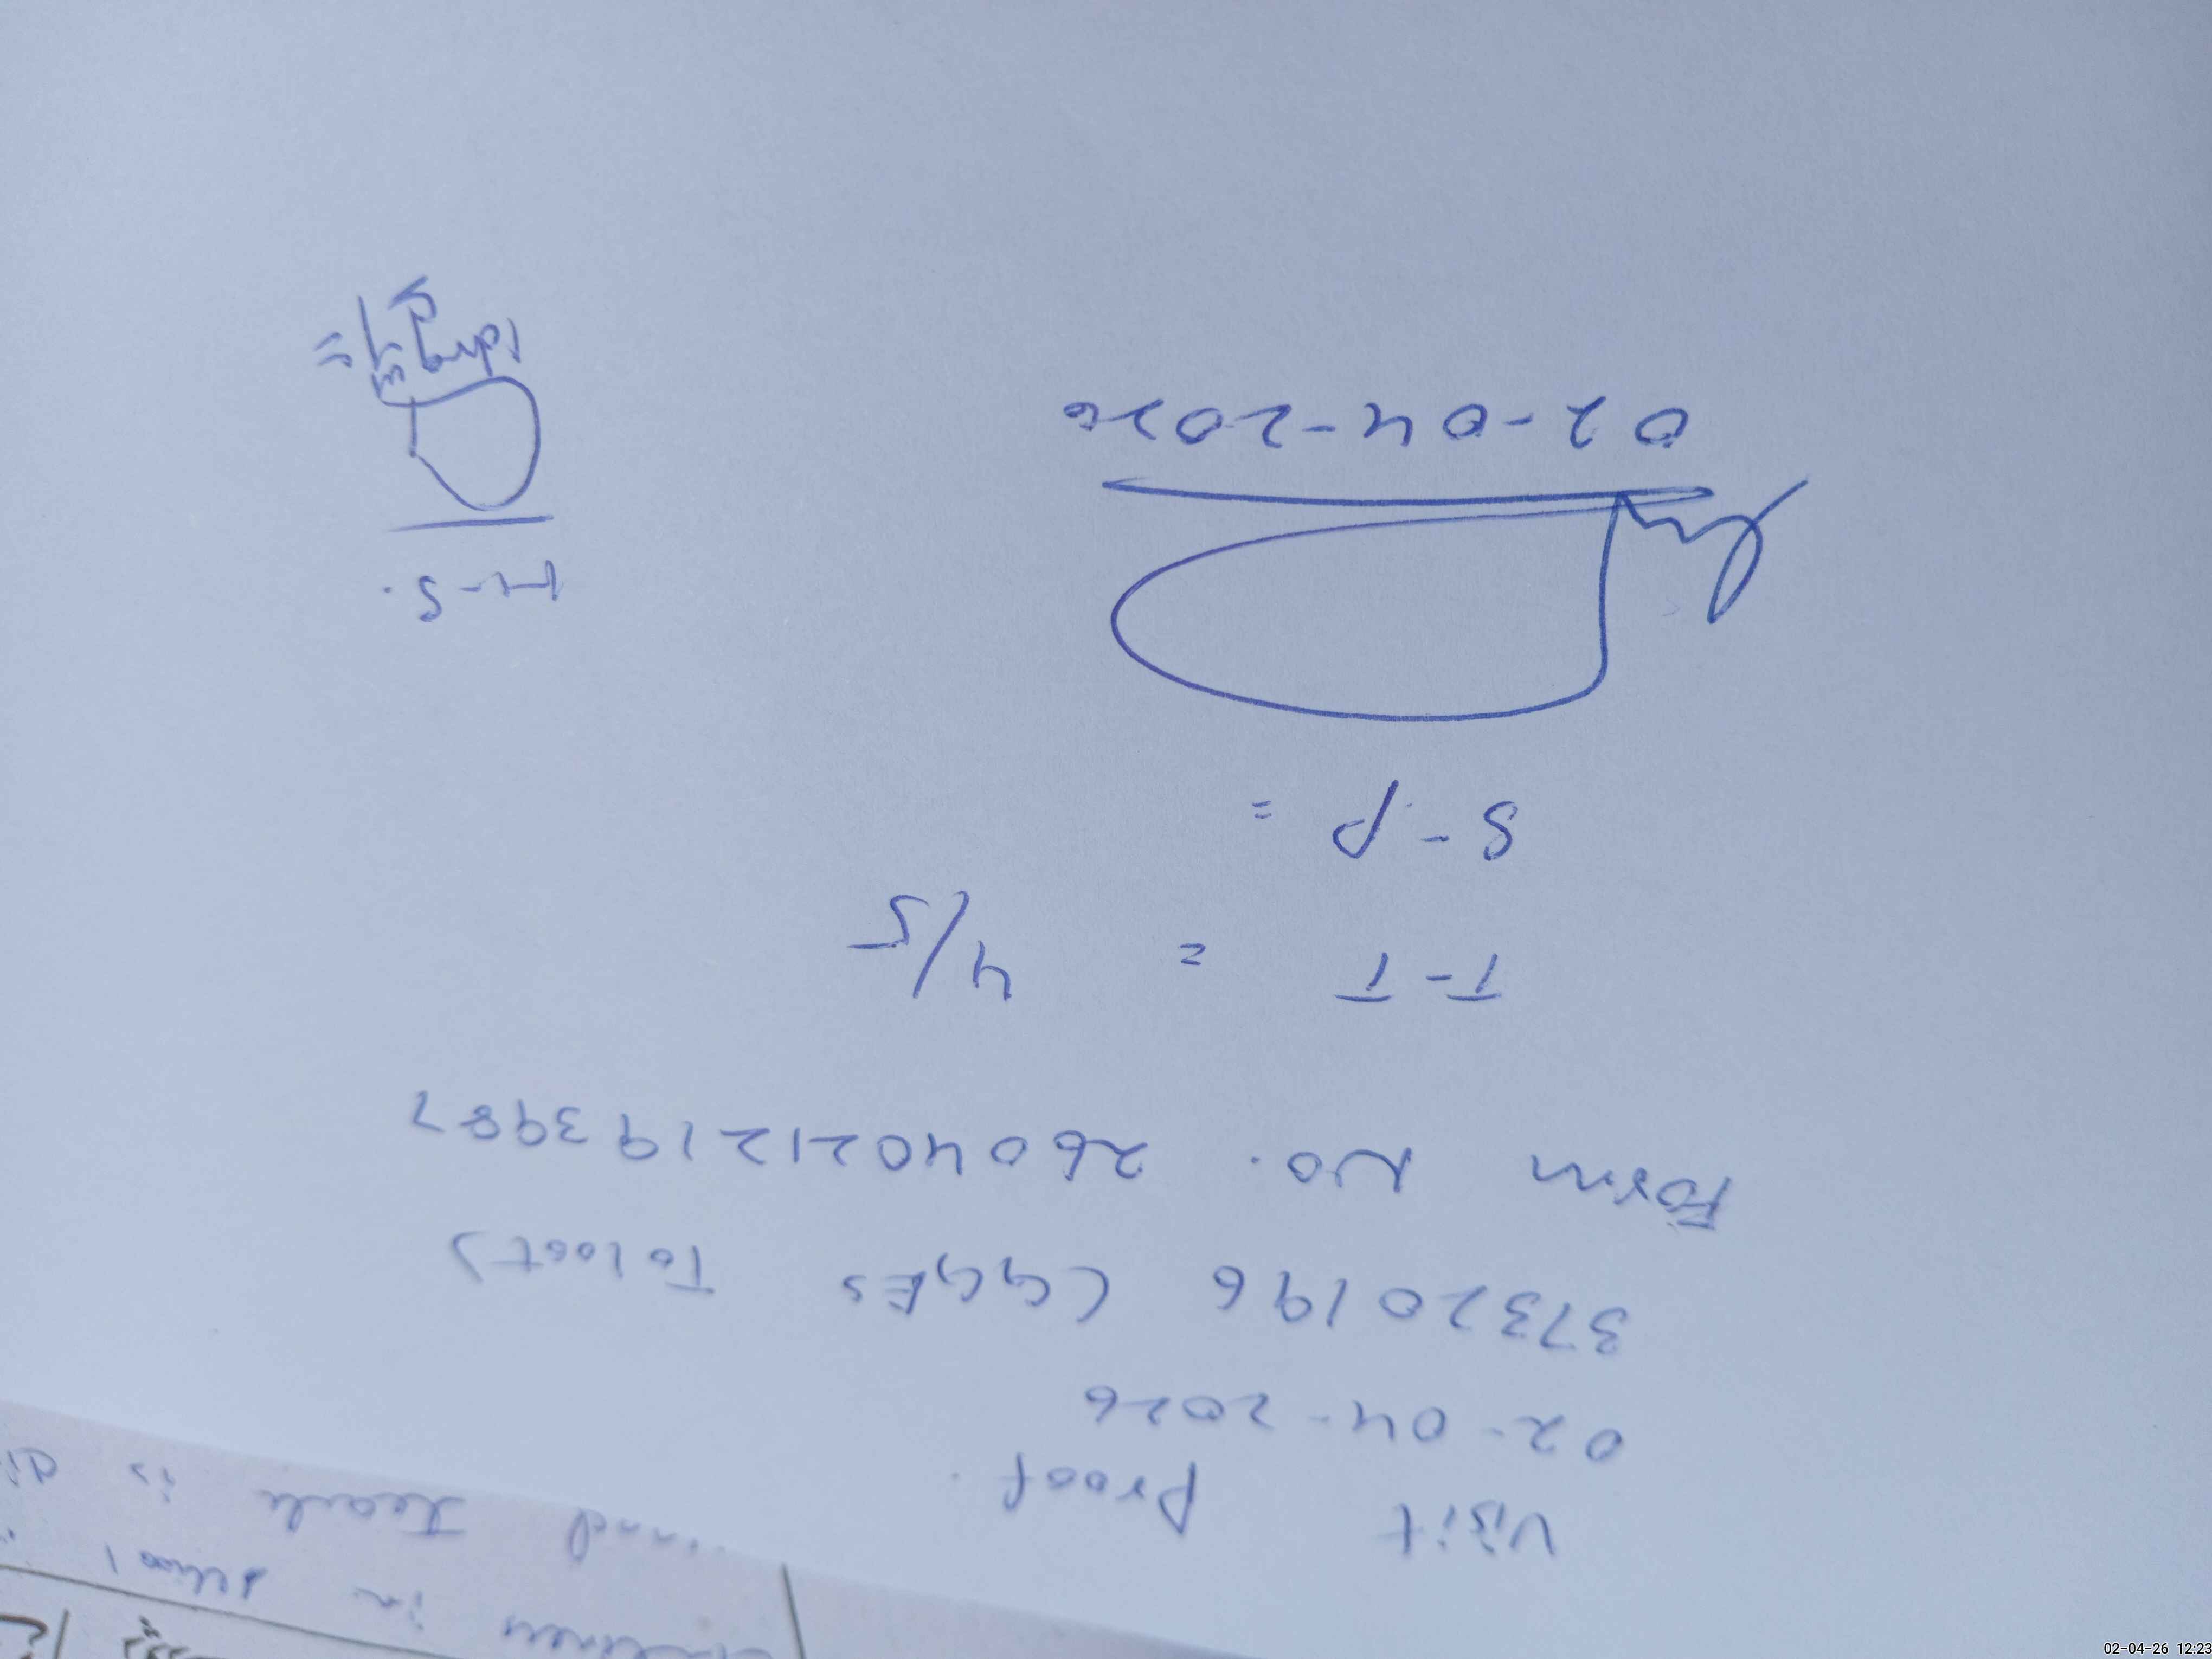 Visit Proof.
02-04-2026
37320196 (GGES Toloot)
Form No. 26040212193987
T-T = 4/5
S-P =
02-04-2026
H-S.
in school
is
02-04-26 12:23